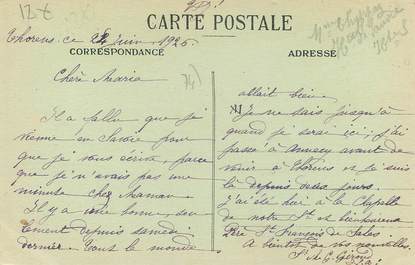 12€
CARTE POSTALE
Thorens ce 22 Juin 1926
CORRESPONDANCE
ADRESSE
74)
Chère Maria
Il a fallu que je
vienne en Savoie pour
que je vous écrive, parce
que je n'avais pas une
minute chez Maman.
Il y a une bonne, seu
lement depuis samedi
dernier. Tout le monde
allait bien.
Je ne sais jusqu'à
quand je serai ici; j'ai
passé à Annecy avant de
venir à Thorens et je suis
là depuis deux jours.
J'ai été hier à la Chapelle
de notre St et bienheureux
Père St François de Sales.
A bientôt de vos nouvelles.